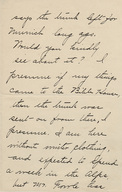 says the trunk left for
Munich long ago.
Would you kindly
see about it? I
presume if my things
came to the
then the trunk was
sent on from there, I
presume. I am here
without winter clothing,
and expected to spend
a week in the Alps
but Mr.